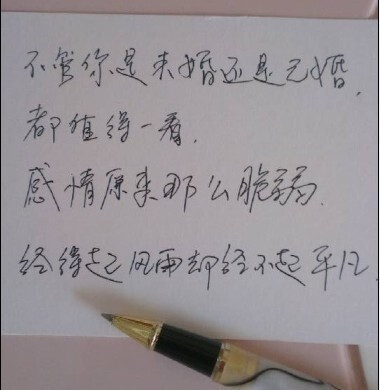 不管你是未婚还是已婚,
都值得一看,
感情原来那么脆弱.
经得起风雨却经不起平凡